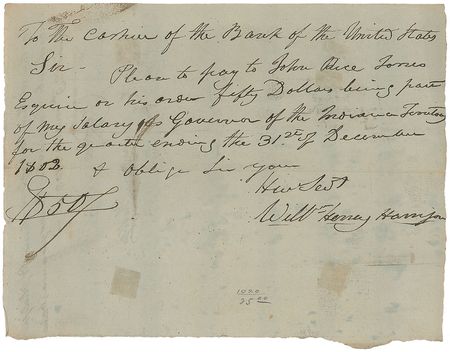 To The Cashier of the Bank of the United States
Sir - Please to pay to John Rice Jones
Esquire or his order fifty Dollars being part
of my Salary as Governor of the Indiana Territory
for the quarter ending the 31st of December
1802 & oblige Sir your
Hue Servt
$50/ Willm Henry Harrison
1020
25 00